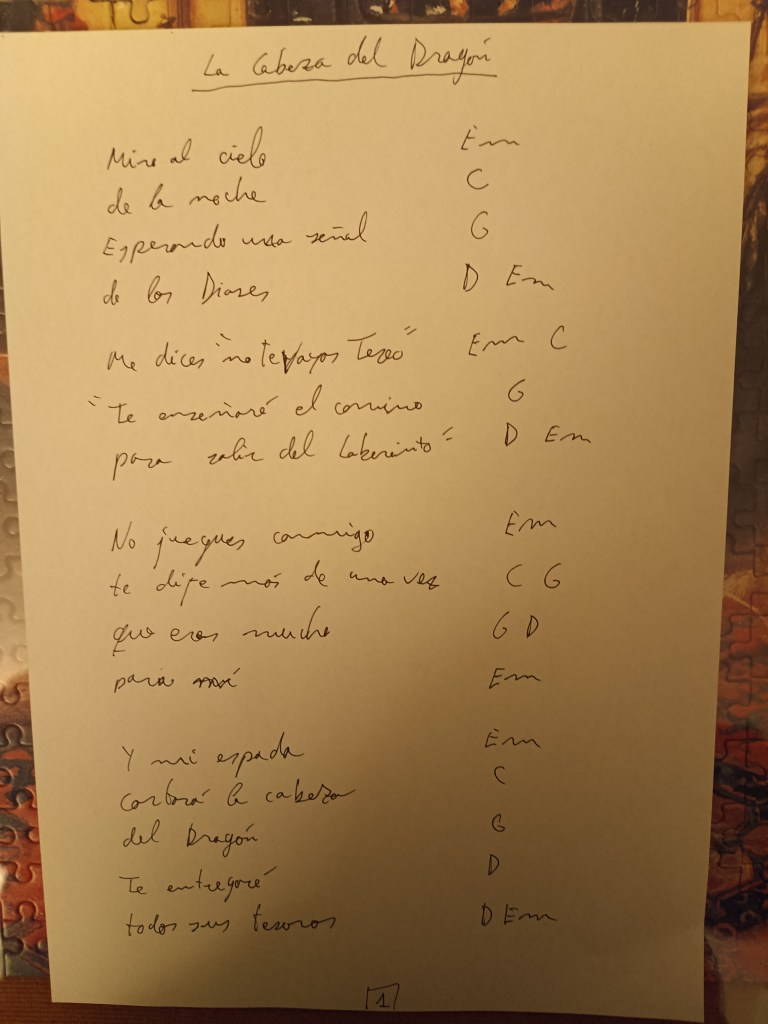 La Cabeza del Dragón
Miro al cielo Em
de la noche C
Esperando una señal G
de los Dioses D Em
Me dices "no te vayas Teseo" Em C
"Te enseñaré el camino G
para salir del Laberinto" D Em
No juegues conmigo Em
te dije más de una vez C G
que eras mucho G D
para mí Em
Y mi espada Em
cortará la cabeza C
del Dragón G
Te entregaré D
todos sus tesoros D Em
1